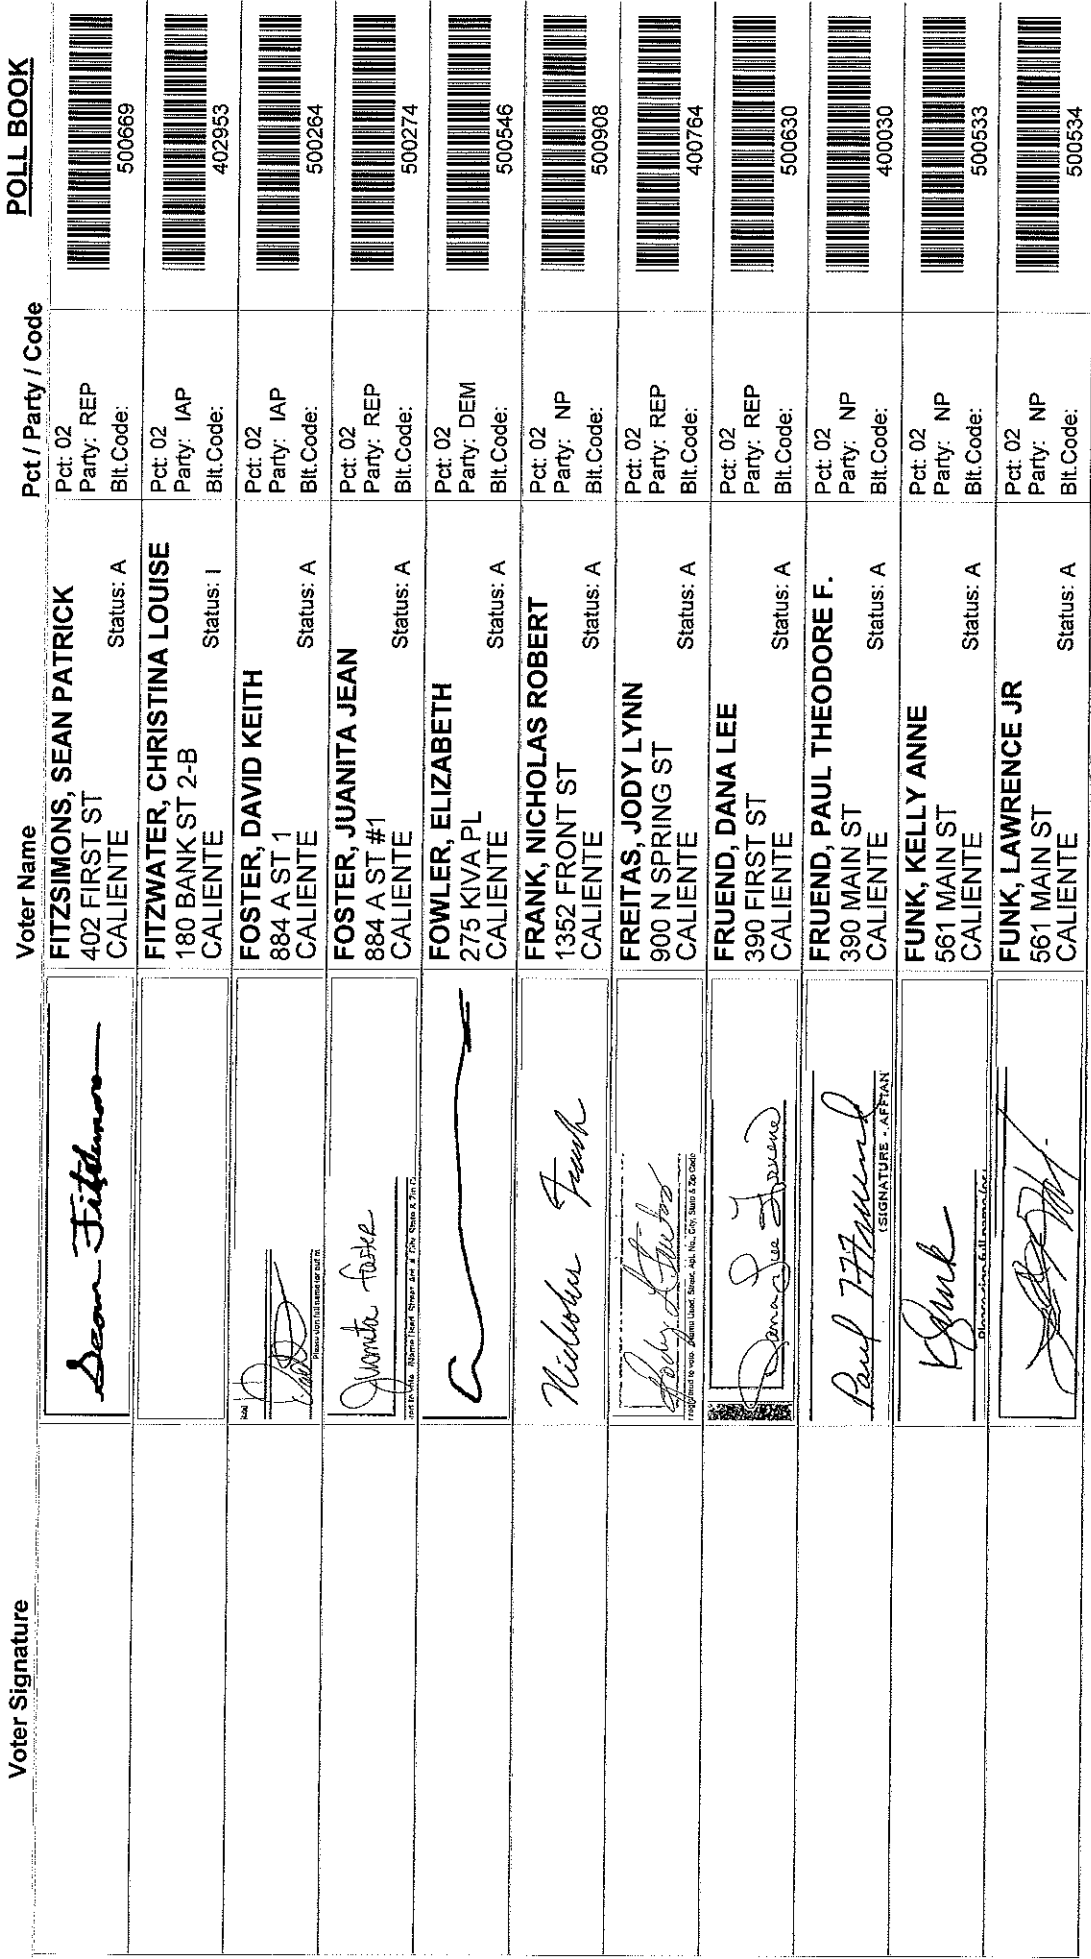 Voter Signature Voter Name Pct / Party / Code POLL BOOK
Sean Fitzsimons
FITZSIMONS, SEAN PATRICK
402 FIRST ST
CALIENTE Status: A
Pct: 02
Party: REP
Blt.Code:
500669
FITZWATER, CHRISTINA LOUISE
180 BANK ST 2-B
CALIENTE Status: I
Pct: 02
Party: IAP
Blt.Code:
402953
FOSTER, DAVID KEITH
884 A ST 1
CALIENTE Status: A
Pct: 02
Party: IAP
Blt.Code:
500264
Juanita Foster
FOSTER, JUANITA JEAN
884 A ST #1
CALIENTE Status: A
Pct: 02
Party: REP
Blt.Code:
500274
FOWLER, ELIZABETH
275 KIVA PL
CALIENTE Status: A
Pct: 02
Party: DEM
Blt.Code:
500546
Nicholas Frank
FRANK, NICHOLAS ROBERT
1352 FRONT ST
CALIENTE Status: A
Pct: 02
Party: NP
Blt.Code:
500908
Street, Apt. No., City, State & Zip Code
FREITAS, JODY LYNN
900 N SPRING ST
CALIENTE Status: A
Pct: 02
Party: REP
Blt.Code:
400764
Dana Lee Fruend
FRUEND, DANA LEE
390 FIRST ST
CALIENTE Status: A
Pct: 02
Party: REP
Blt.Code:
500630
Paul T F Fruend
(SIGNATURE - AFFIAN
FRUEND, PAUL THEODORE F.
390 MAIN ST
CALIENTE Status: A
Pct: 02
Party: NP
Blt.Code:
400030
KFunk
FUNK, KELLY ANNE
561 MAIN ST
CALIENTE Status: A
Pct: 02
Party: NP
Blt.Code:
500533
FUNK, LAWRENCE JR
561 MAIN ST
CALIENTE Status: A
Pct: 02
Party: NP
Blt.Code:
500534